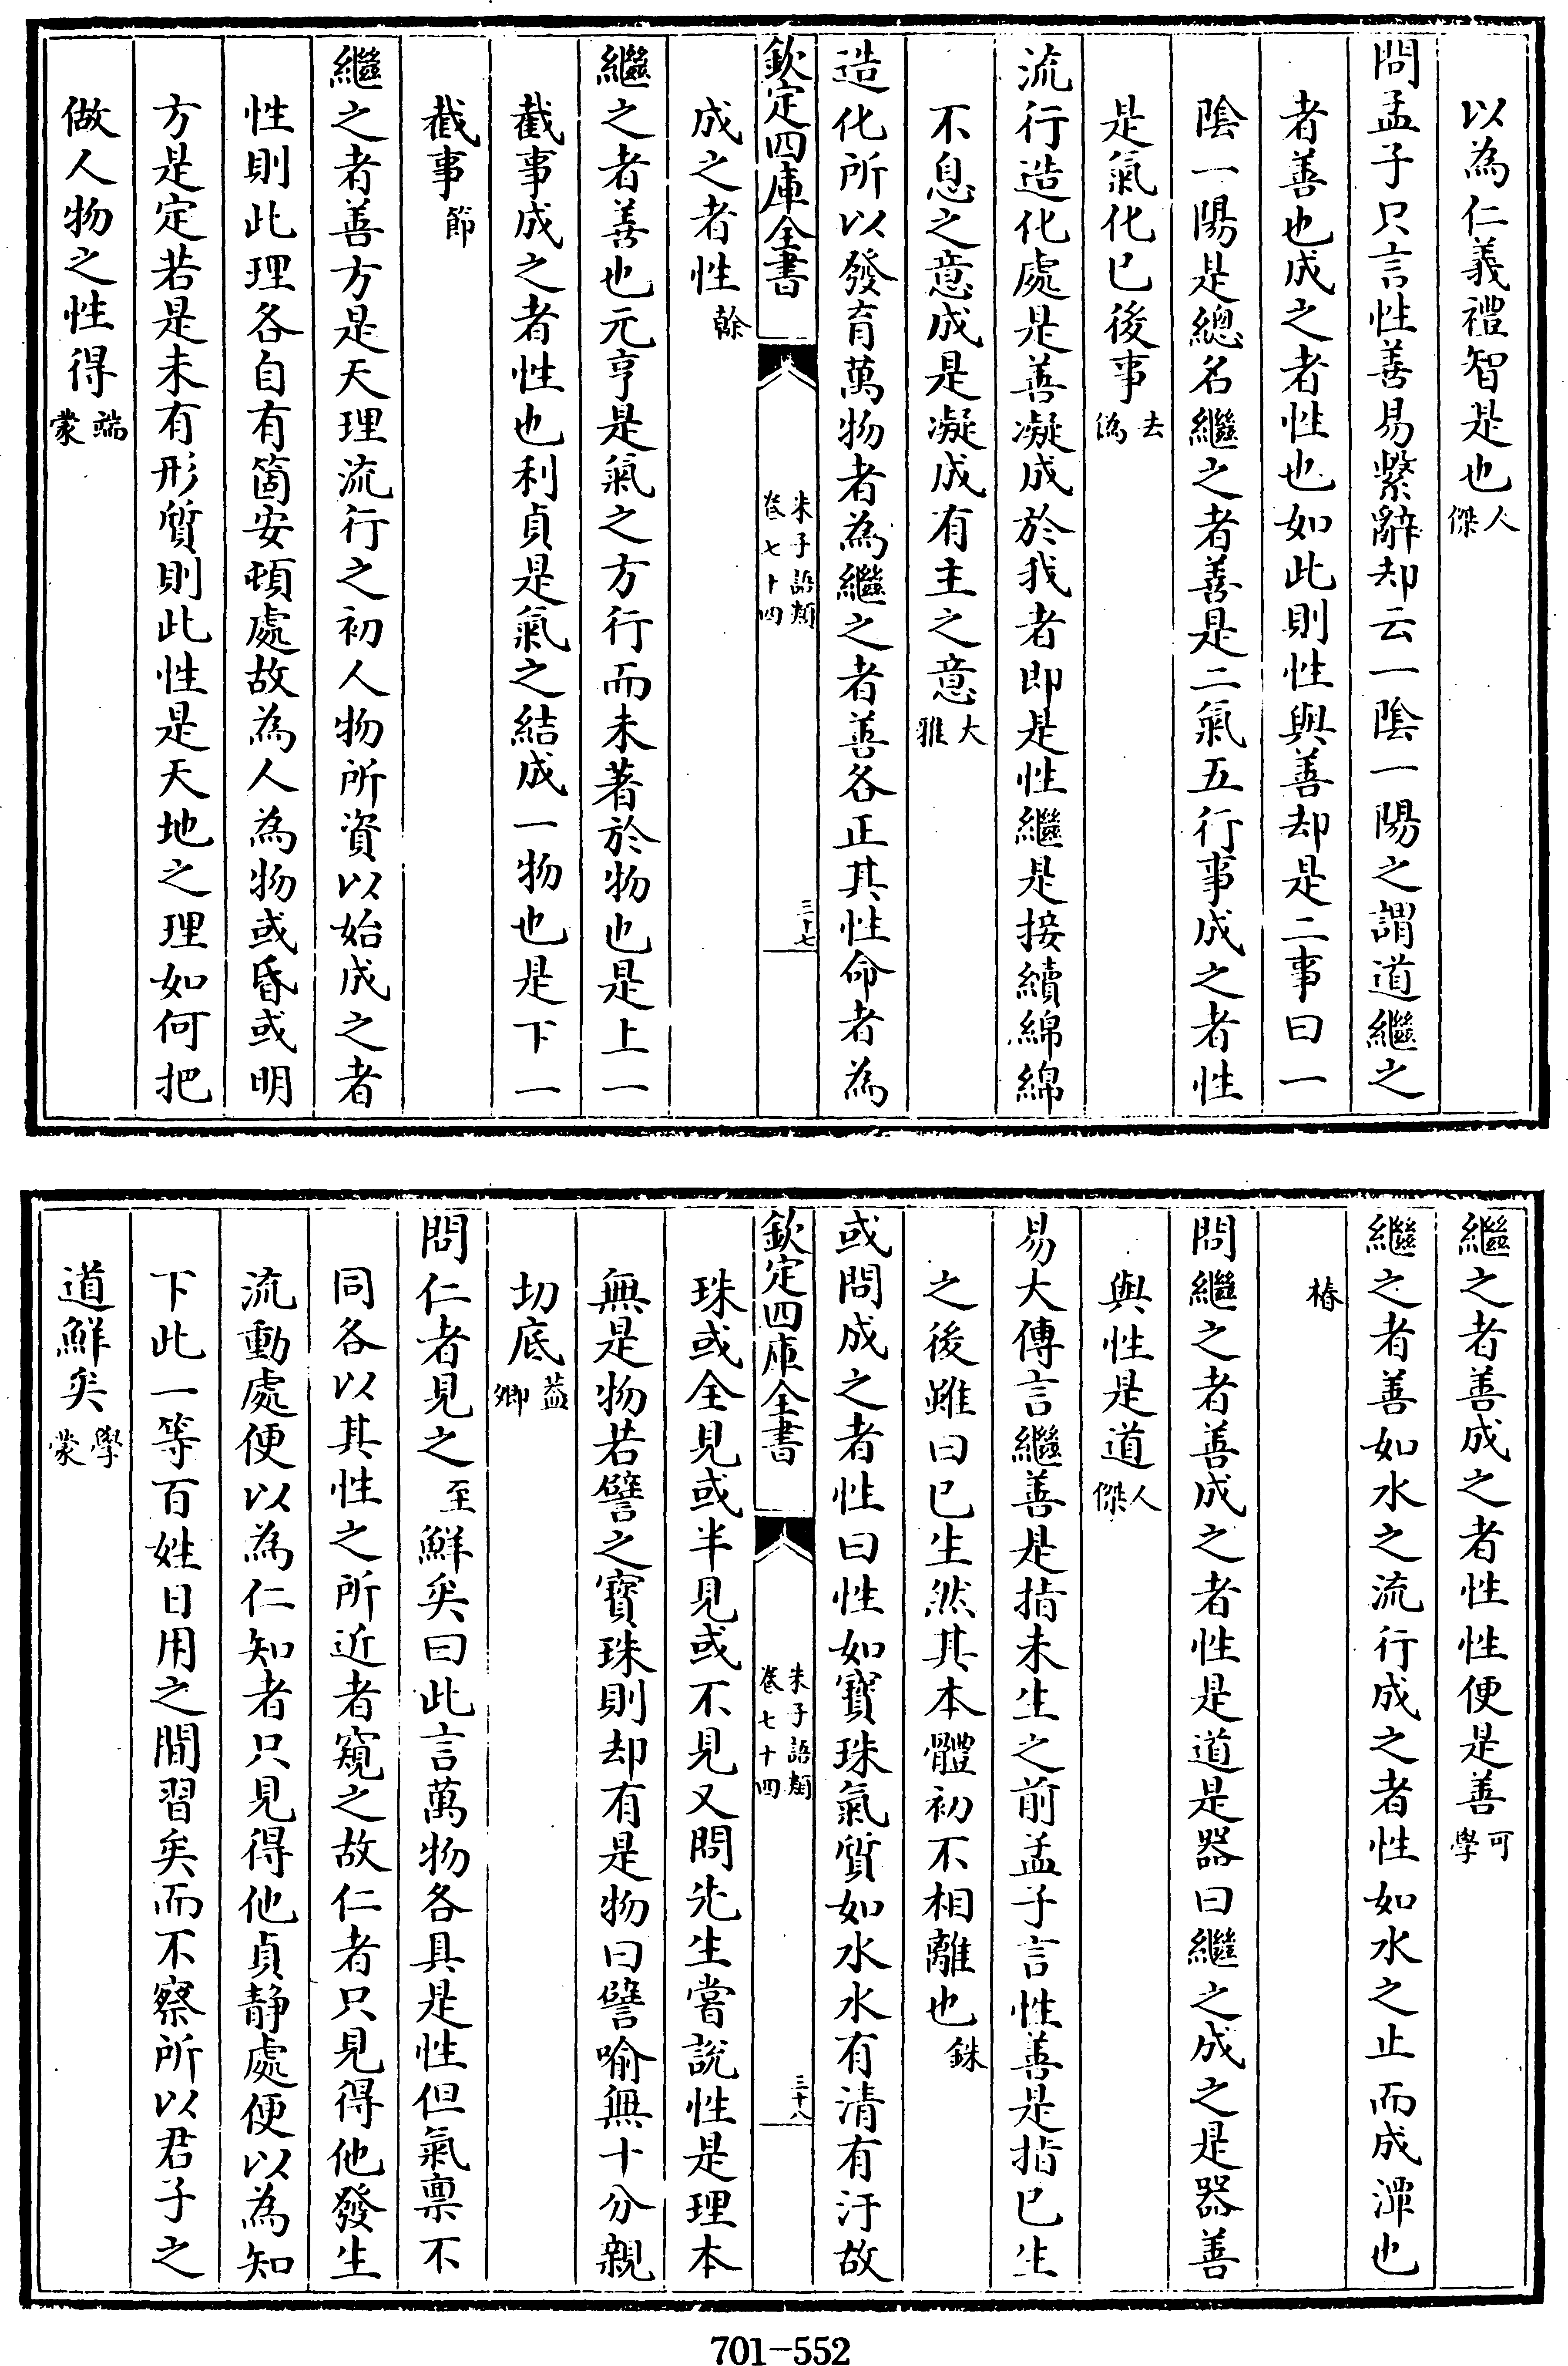 以為仁義禮智是也人傑
問孟子只言性善易繫辭却云一陰一陽之謂道繼之
者善也成之者性也如此則性與善却是二事曰一
陰一陽是總名繼之者善是二氣五行事成之者性
是氣化已後事去偽
流行造化處是善凝成於我者即是性繼是接續綿綿
不息之意成是凝成有主之意大雅
造化所以發育萬物者為繼之者善各正其性命者為
欽定四庫全書
朱子語類
卷七十四
三十七
成之者性榦
繼之者善也元亨是氣之方行而未著於物也是上一
截事成之者性也利貞是氣之結成一物也是下一
截事節
繼之者善方是天理流行之初人物所資以始成之者
性則此理各自有箇安頓處故為人為物或昏或明
方是定若是未有形質則此性是天地之理如何把
做人物之性得端蒙
繼之者善成之者性性便是善可學
繼之者善如水之流行成之者性如水之止而成潭也
椿
問繼之者善成之者性是道是器曰繼之成之是器善
與性是道人傑
易大傳言繼善是指未生之前孟子言性善是指已生
之後雖曰已生然其本體初不相離也銖
或問成之者性曰性如寶珠氣質如水水有清有汙故
欽定四庫全書
朱子語類
卷七十四
三十八
珠或全見或半見或不見又問先生嘗說性是理本
無是物若譬之寶珠則却有是物曰譬喻無十分親
切底蓋卿
問仁者見之至鮮矣曰此言萬物各具是性但氣稟不
同各以其性之所近者窺之故仁者只見得他發生
流動處便以為仁知者只見得他貞静處便以為知
下此一等百姓日用之間習矣而不察所以君子之
道鮮矣學蒙
701-552